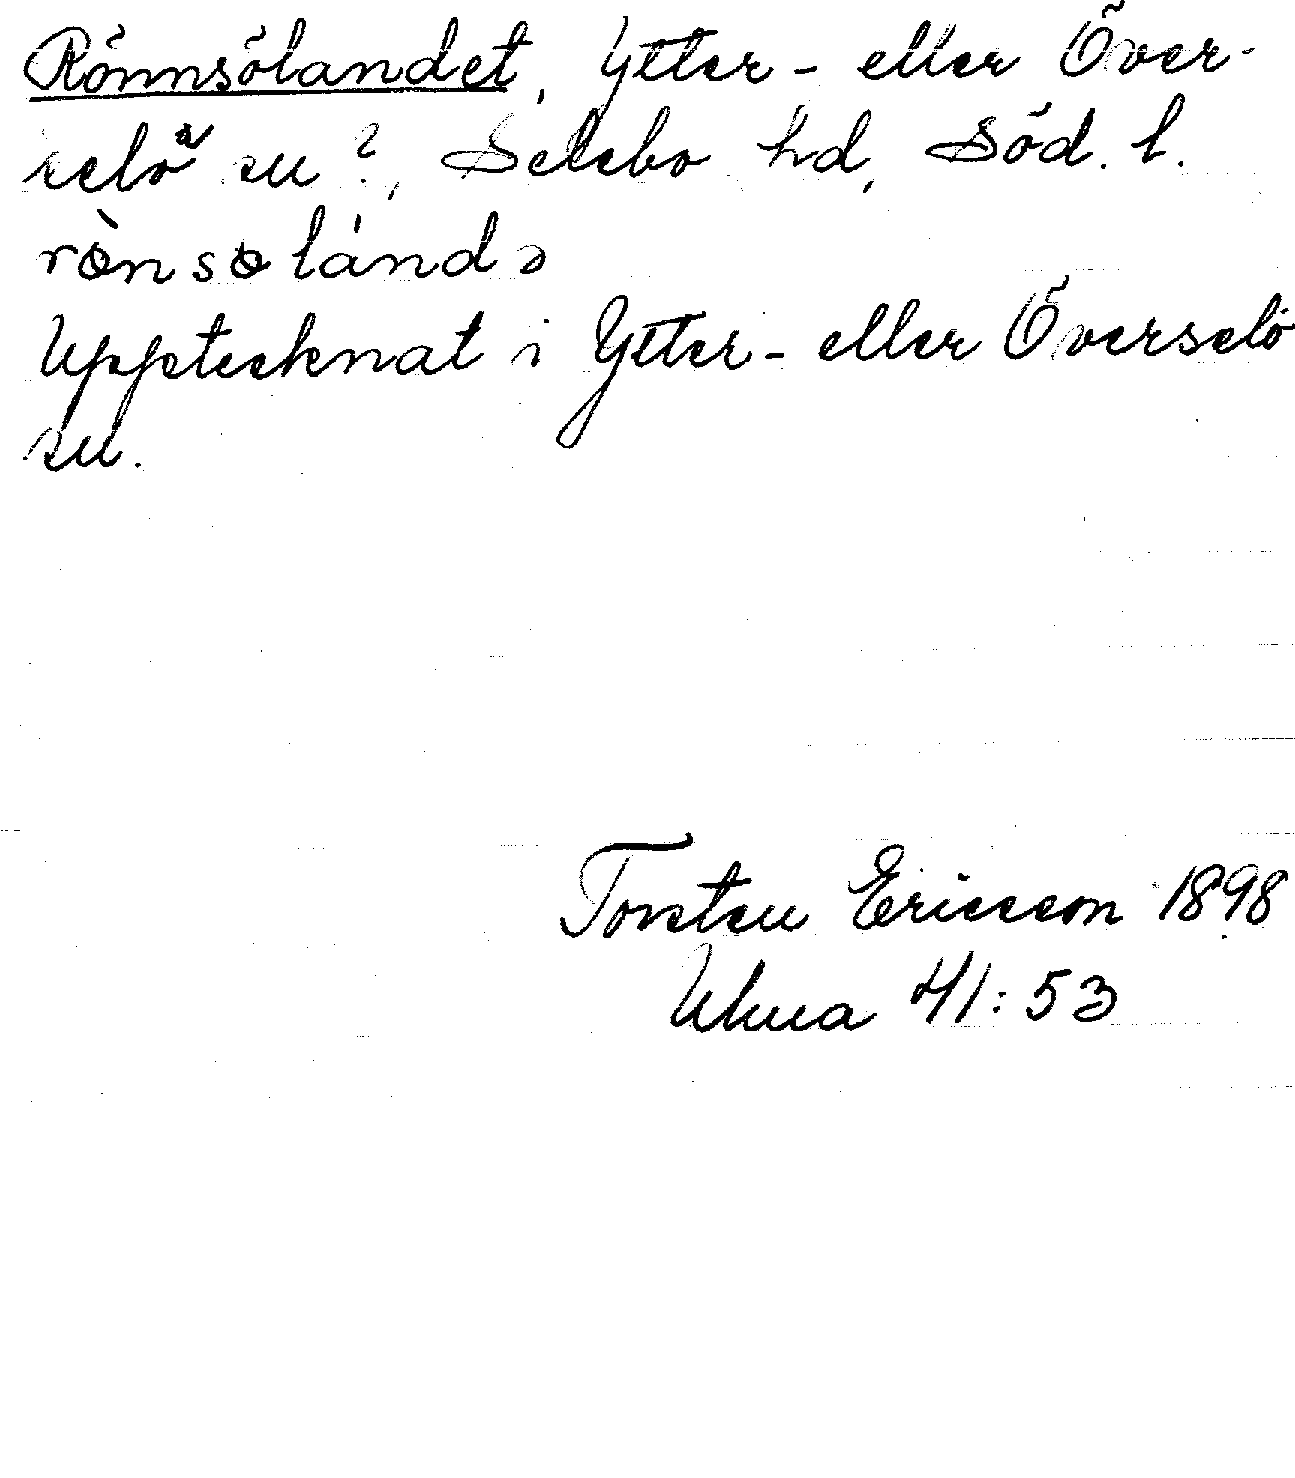 Rönnsölandet, Ytter- eller Över-
selö sn?, Selebo hd, Söd. l.
rὼnsɷlándə
Upptecknat i Ytter- eller Överselö
sn.
Torsten Ericsson 1898
Ukna 41:53